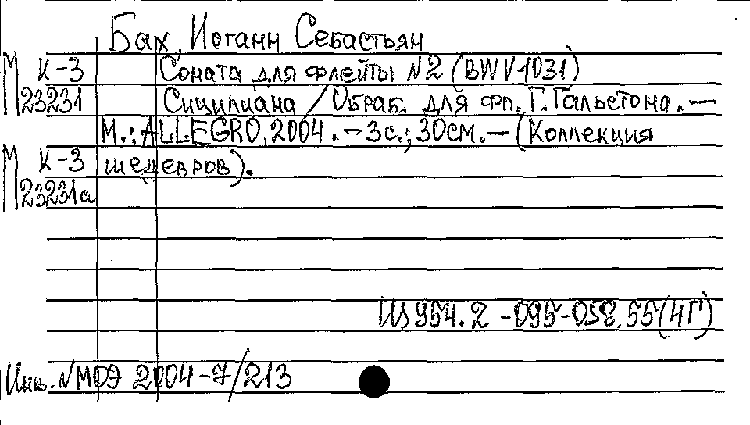 Бах, Иоганн Себастьян
М К-3 Соната для флейты №2 (BWV 1031)
23231 Сицилиана / Обраб. для фп. Г. Гальстона. —
М.: ALLEGRO, 2004. – 3с.; 30см. — (Коллекция
М К-3 шедевров).
23231а
-095-058,55(4Г)
Инв. № МОЭ 2004-7/213